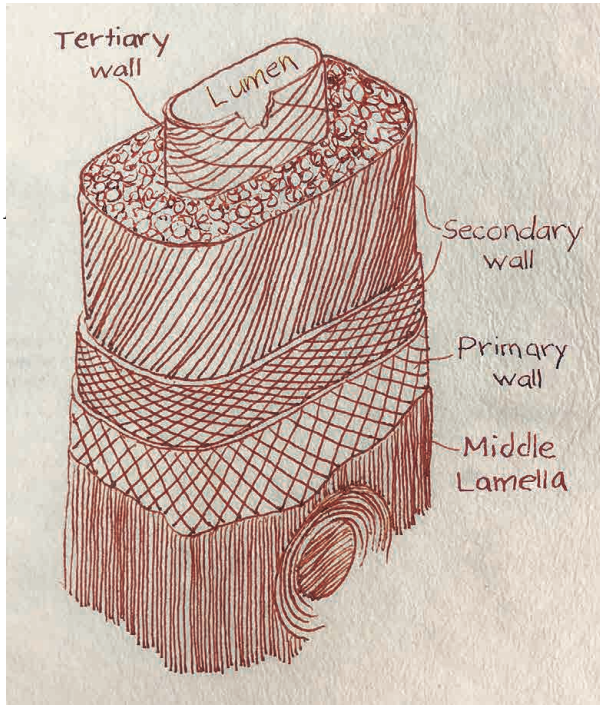 Tertiary
wall
Lumen
Secondary
wall
Primary
wall
Middle
Lamella